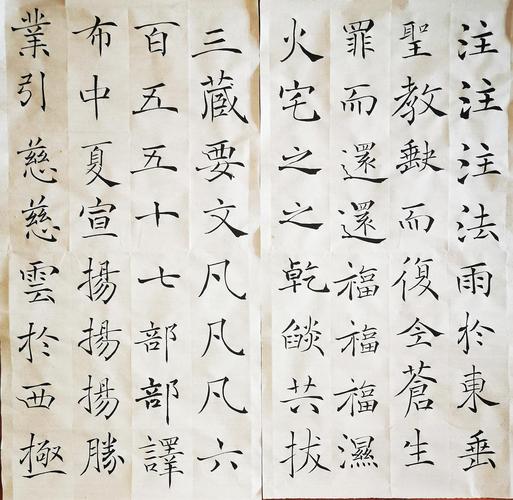 三藏要文凡凡凡六
百五五十七部部譯
布中夏宣揚揚揚勝
業引慈慈雲扵西極
注注注法雨扵東垂
聖教缺而復全蒼生
罪而還還福福福濕
火宅之之乾燄共拔